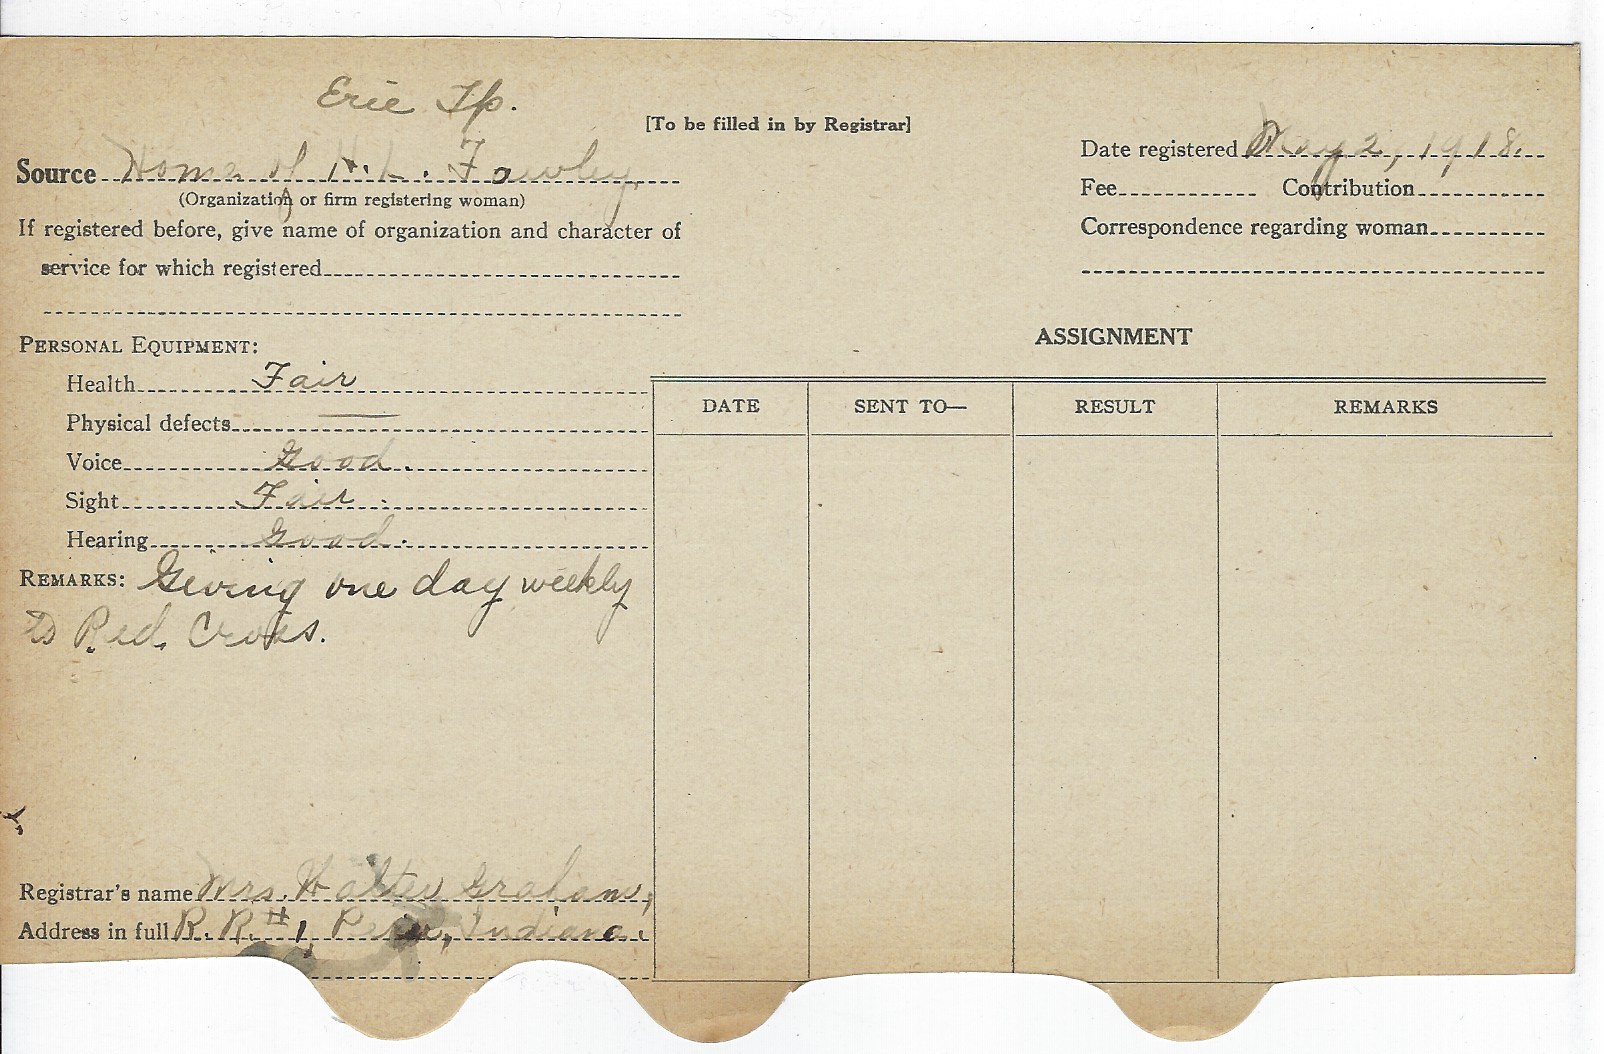 Erie Tp.
[To be filled in by Registrar]
Date registered May 2, 1918.
Source Home of H. L. Fawley
(Organization or firm registering woman)
Fee Contribution
If registered before, give name of organization and character of
service for which registered
Correspondence regarding woman
PERSONAL EQUIPMENT:
Health Fair
Physical defects —
Voice Good.
Sight Fair.
Hearing Good.
REMARKS: Giving one day weekly
to Red Cross.
ASSIGNMENT
DATE SENT TO— RESULT REMARKS
Registrar's name Mrs. Walter Graham,
Address in full R. R. #1, Peru, Indiana.